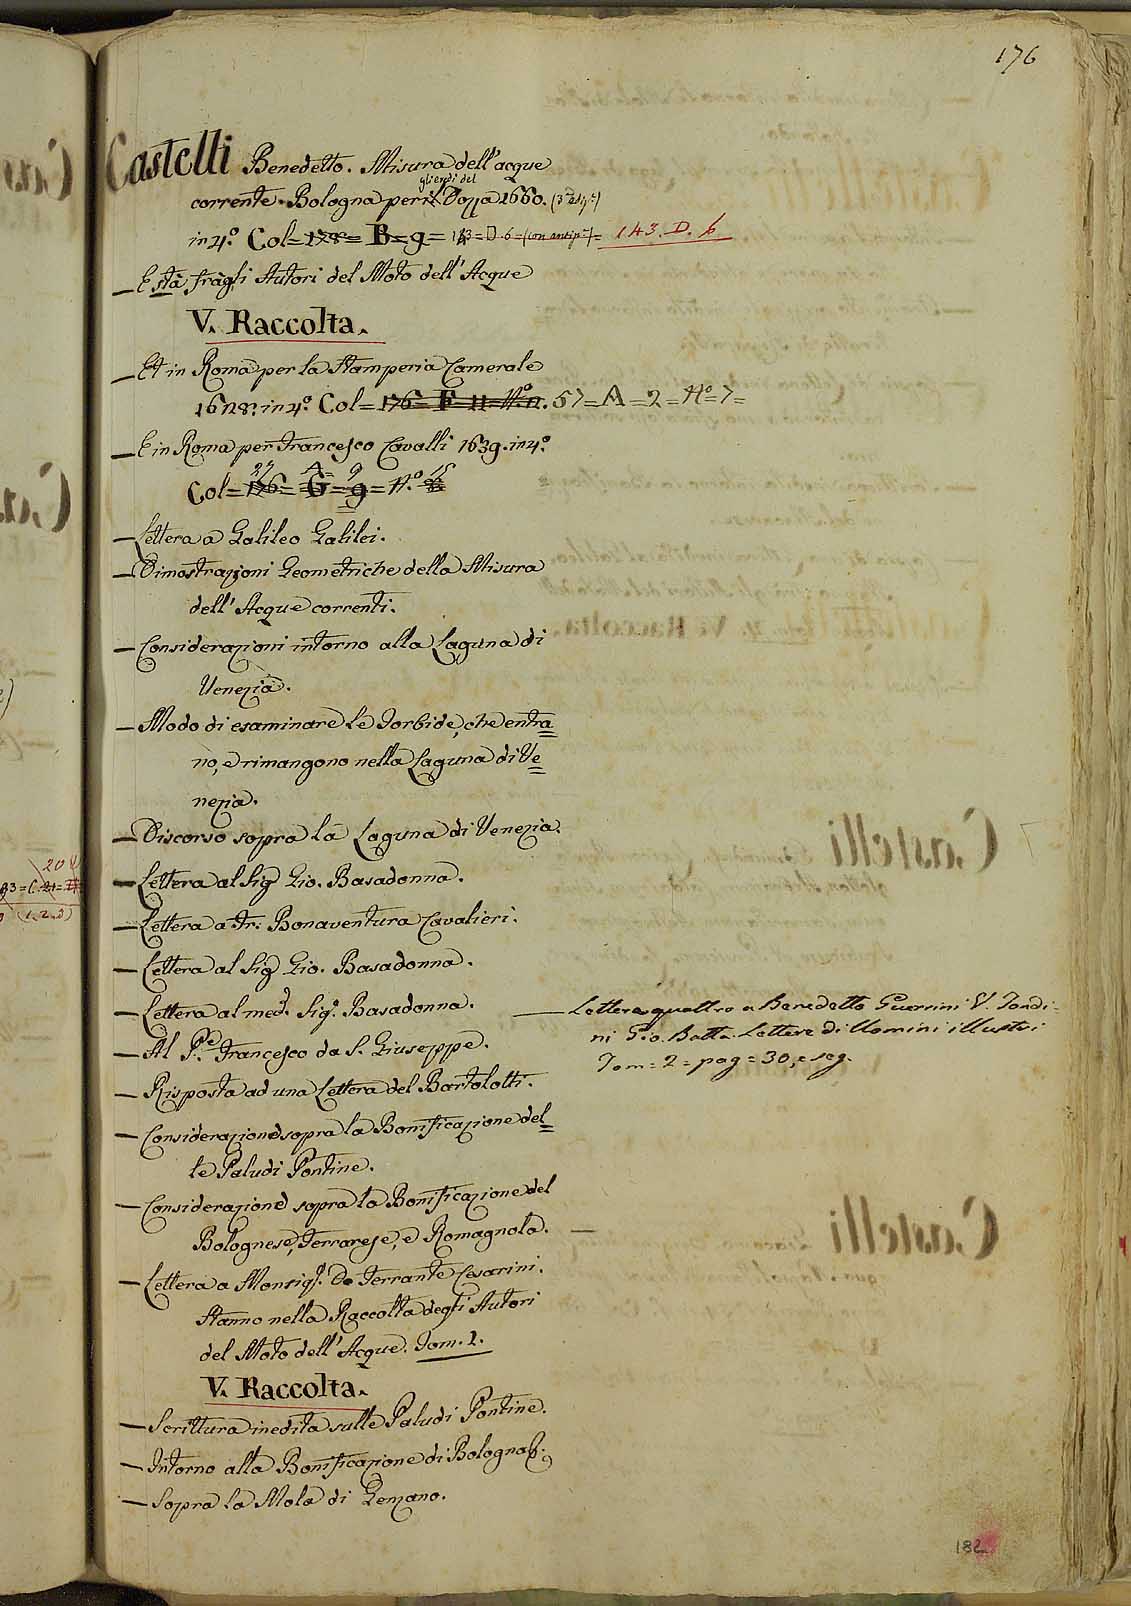 176
Castelli Benedetto. Misura dell'acque
corrente. Bologna per gli eredi del Dozza 1660. (3.ª ediz.e)
in 4.º Col= 178= B= 9= 143=D.6=(con antip.ª)= 143. D. 6
— Està fràgli Autori del Moto dell'Acque
V. Raccolta.
— Et in Roma per la Stamperia Camerale
1628. in 4.º Col= 176= F= 11= N.º 57=A=2=N.º=7=
— E in Roma per Francesco Cavalli 1639. in 4.º
27 A= 9 15
Col= 176= G= 9= N.º
— Lettera a Galileo Galilei.
— Dimostrazioni Geometriche della Misura
dell'Acque correnti.
— Considerazioni intorno alla Laguna di
Venezia.
— Modo di esaminare le Torbide, che entra=
no, e rimangono nella Laguna di Ve=
nezia.
— Discorso sopra la Laguna di Venezia.
— Lettera al Sig Gio. Basadonna.
— Lettera a Fr: Bonaventura Cavalieri.
— Lettera al Sig Gio. Basadonna.
— Lettera al med.º Sig.º Basadonna.
— Al P.re Francesco da S. Giuseppe.
— Risposta ad una Lettera del Bartolotti.
— Considerazione sopra la Bonificazione del=
le Paludi Pontine.
— Considerazione sopra la Bonificazione del
Bolognese, Ferrarese, e Romagnola. —
— Lettera a Monsig.r D. Ferrante Cesarini.
Stanno nella Raccolta degli Autori
del Moto dell'Acque. Tom. 1.
V. Raccolta.
— Scrittura inedita sulle Paludi Pontine.
— Intorno alla Bonificazione di Bologna &.
— Sopra la Mola di Genzano.
— Lettere quattro a Benedetto Guerrini V. Fondi-
ni Gio. Batta. Lettere di Uomini illustri
Tom=2=pag=30, e seg.
182